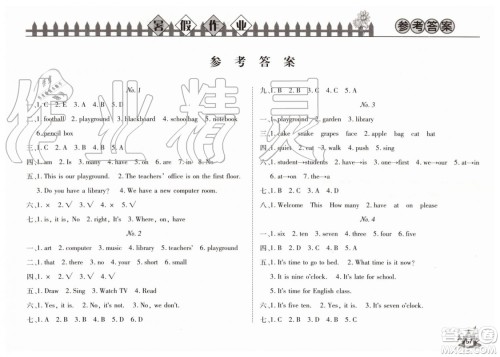 暑假作业
参考答案
参考答案
No. 1
一、1. C 2. E 3. A 4. B 5. D
二、1. football 2. playground 3. blackboard 4. schoolbag 5. notebook
6. pencil box
四、1. am 2. Is 3. many 4. have 5. on 6. are
五、1. This is our playground. 2. The teachers' office is on the first floor.
3. Do you have a library? 4. We have a new computer room.
六、1. × 2. √ 3. √ 4. ×
七、1. is, it is, No 2. right, It's 3. Where, on, have
No. 2
一、1. art 2. computer 3. music 4. library 5. teachers' 6. playground
二、1. that 2. there 3. no 4. many 5. do
四、1. × 2. × 3. √ 4. √
五、1. Draw 2. Sing 3. Watch TV 4. Read
六、1. Yes, it is. 2. No, it's not. 3. Yes, it is.
七、1. C 2. A 3. B 4. D
九、1. B 2. B 3. C 4. C 5. C
No. 3
一、1. playground 2. garden 3. library
三、1. cake snake grapes face 2. apple bag cat hat
四、1. quiet 2. eat 3. walk 4. push 5. sing
五、1. student→students 2. have→has 3. on→in 4. on→in 5. at→in
6. the→a
七、1. B 2. B 3. A 4. D
八、Welcome This How many have at on please
No. 4
一、1. six 2. ten 3. seven 4. three 5. four 6. five
四、1. It's time to go to bed. 2. What time is it now?
3. It is nine o'clock. 4. It's late for school.
5. It's time for English class.
六、1. It's five ten. 2. Yes, it is. 3. It's seven o'clock.
七、1. C 2. B 3. A 4. D 5. C
作业精灵